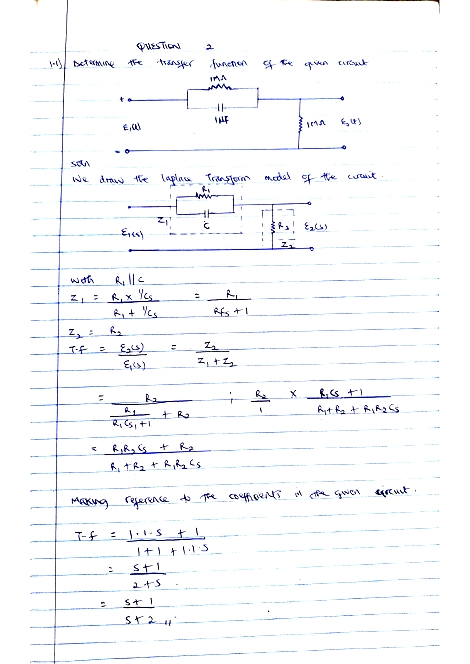 QUESTION 2
1.1) Determine the transfer function of the given circuit
1MΩ
+
1μF
E₁(t)
1MΩ E₂(t)
-
soln
We draw the laplace Transform model of the circuit.
R₁
Z₁
C
E₁(s)
R₂ E₂(s)
Z₂
with R₁ || C
Z₁ = R₁ x 1/Cs / R₁ + 1/Cs = R₁ / R₁Cs + 1
Z₂ = R₂
T-f = E₂(s) / E₁(s) = Z₂ / Z₁ + Z₂
= R₂ / R₁ / R₁Cs + 1 + R₂ ; R₂ / 1 x R₁Cs + 1 / R₁ + R₂ + R₁R₂Cs
= R₁R₂Cs + R₂ / R₁ + R₂ + R₁R₂Cs
Making reference to the coefficients in the given circuit.
T-f = 1.1.s + 1 / 1 + 1 + 1.1.s
= s + 1 / 2 + s
= s + 1 / s + 2 //